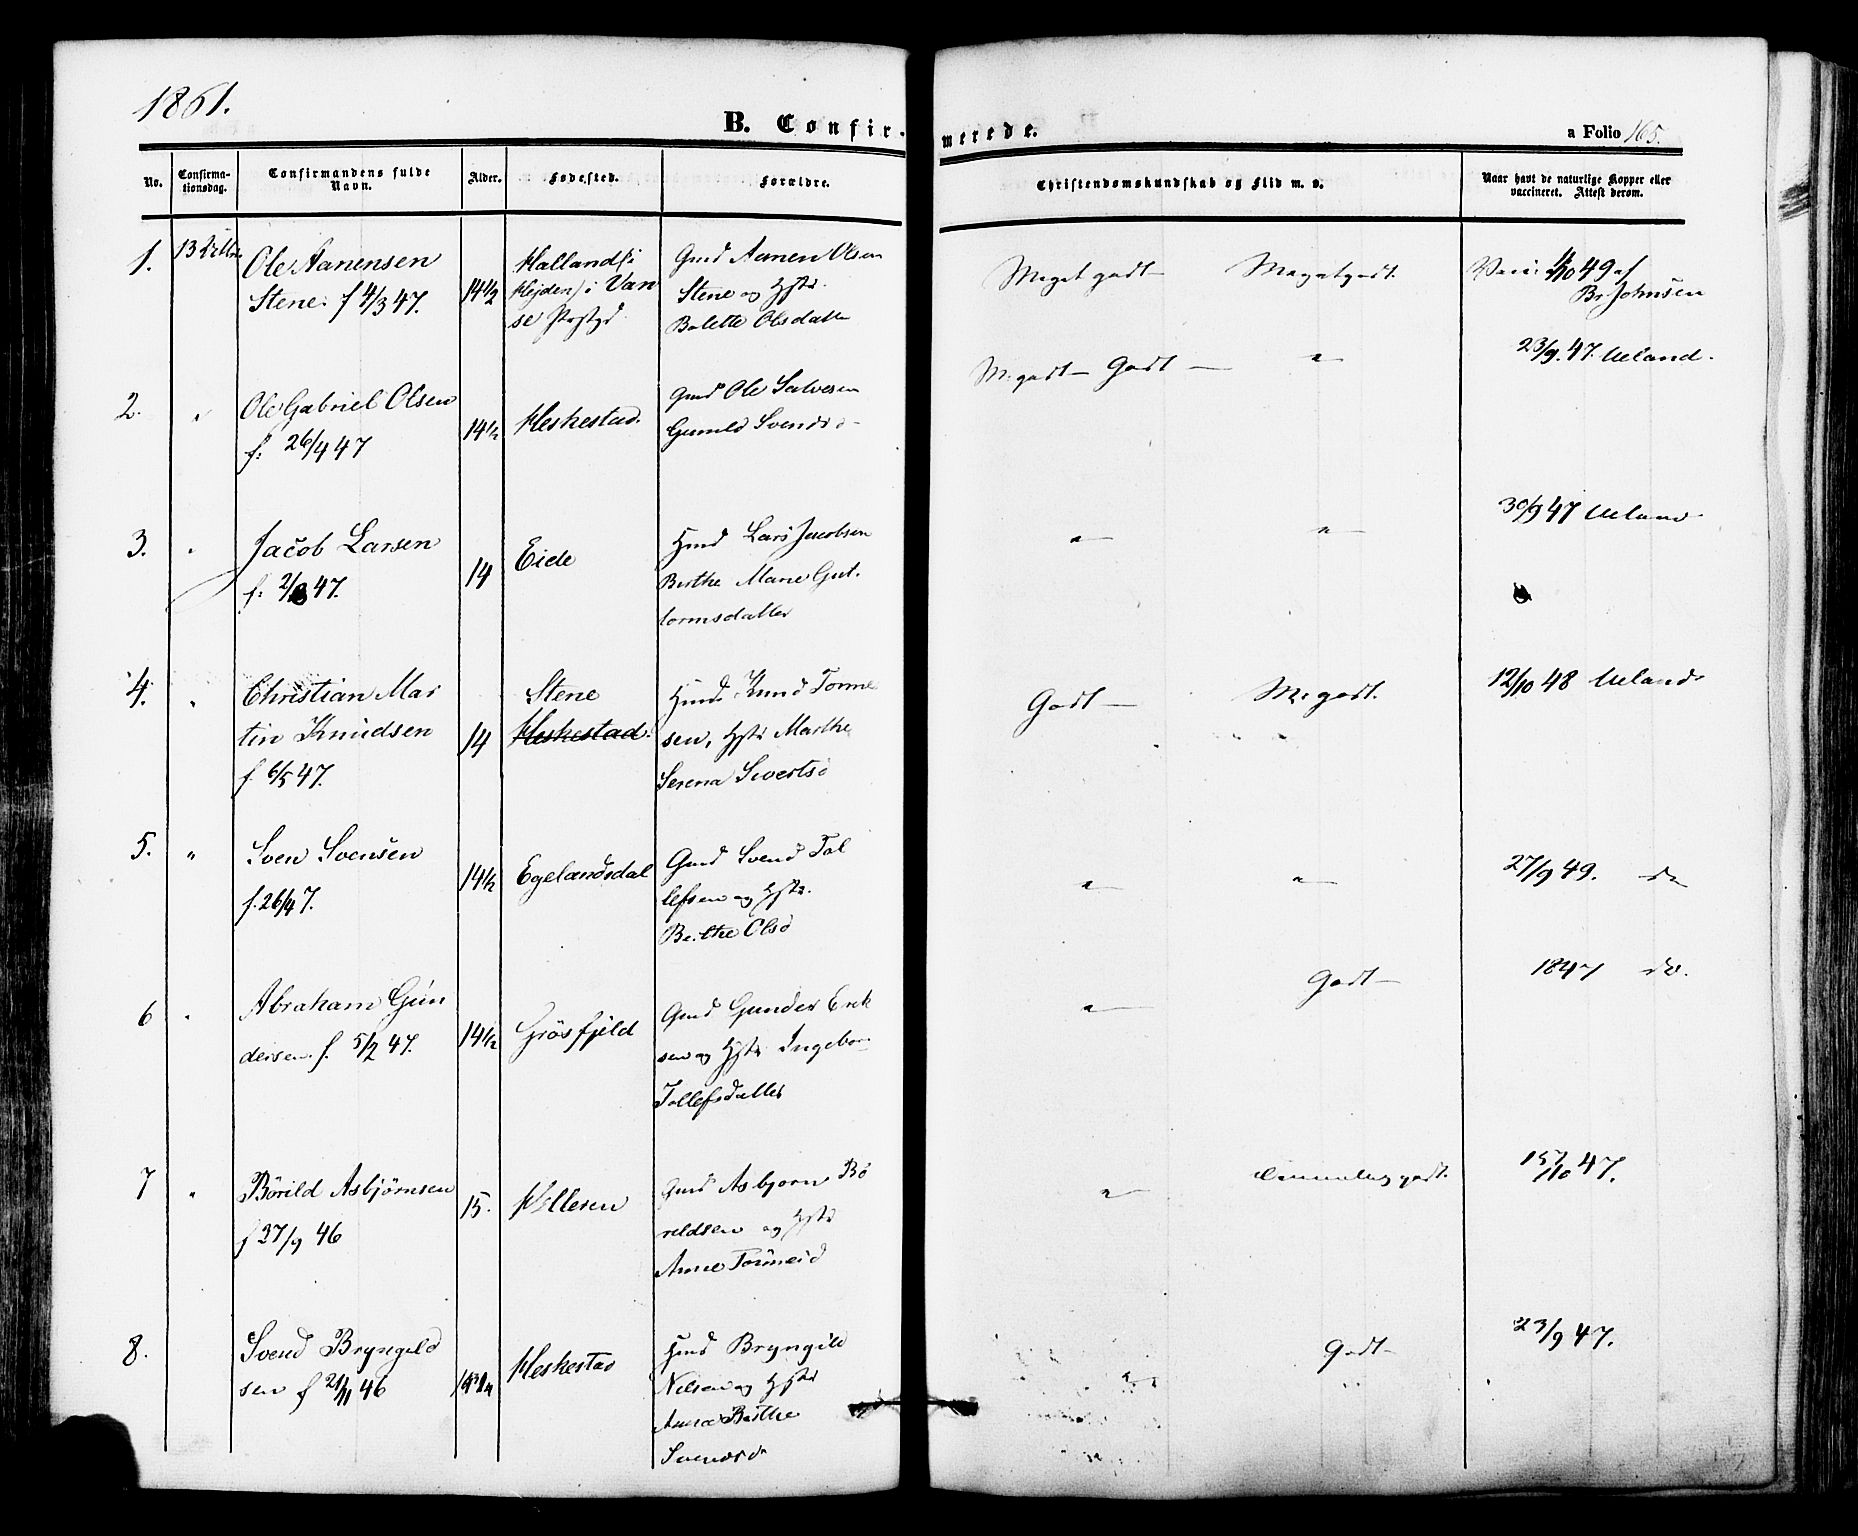 1861.
B. Confirmerede.
a Folio 165.
No.
Confirmationsdag.
Confirmandens fulde Navn.
Alder.
Fødested.
Forældre.
Christendomskundskab og Flid m. v.
Naar havt de naturlige Kopper eller vaccineret. Attest derom.
1.
Ole Aanensen
Stene f 4/3 47.
14 1/2
Halland (i
Hejden) i Van
se
Gmd Aanen Olsen
Stene og Hstr.
Bolette Olsdatter
Meget godt
Meget godt.
4/10 49 af
Br Johnsen
2.
"
Ole Gabriel Olsen
f. 26/4 47
14 1/2
Heskestad.
Gmd Ole Salvesen
Gunild Svendsd
M. godt — Godt —
"
23/9. 47. Ueland.
3.
"
Jacob Larsen
f. 2/8 47.
14
Eide
Hmd Lars Jacobsen
Berthe Marie Gut-
tormsdatter
"
"
30/9 47 Ueland
4.
"
Christian Mar
tin Knudsen
f. 6/5 47.
14
Stene
Heskestad.
Hmd. Knud Tønne
sen, Hstr Marthe
Serena Sivertsd
Godt —
M. godt.
12/10 48 Ueland
5.
"
Sven Svensen
f. 26/4 47.
14 1/2
Egelandsdal
Gmd Svend Tol
lefsen og Hstr.
Berthe Olsd
"
"
27/9 49. do
6
"
Abraham Gun
dersen f. 5/2 47.
14 1/2
Grøsfjeld
Gmd Gunder Erik
sen og Hstr Ingebor
Tollefsdatter
"
Godt —
1847 do.
7
"
Børild Asbjørnsen
f 27/9 46
15.
Hellesen
Gmd Asbjørn Bø
rildsen og Hstr
Anne
"
godt.
/10 47.
8.
Svend Bryngeld
sen f 21/11 46
Heskestad
Hmd Bryngild
Nilsen og Hstr
Anna Berthe
Svendsd
"
Godt
23/9 47.